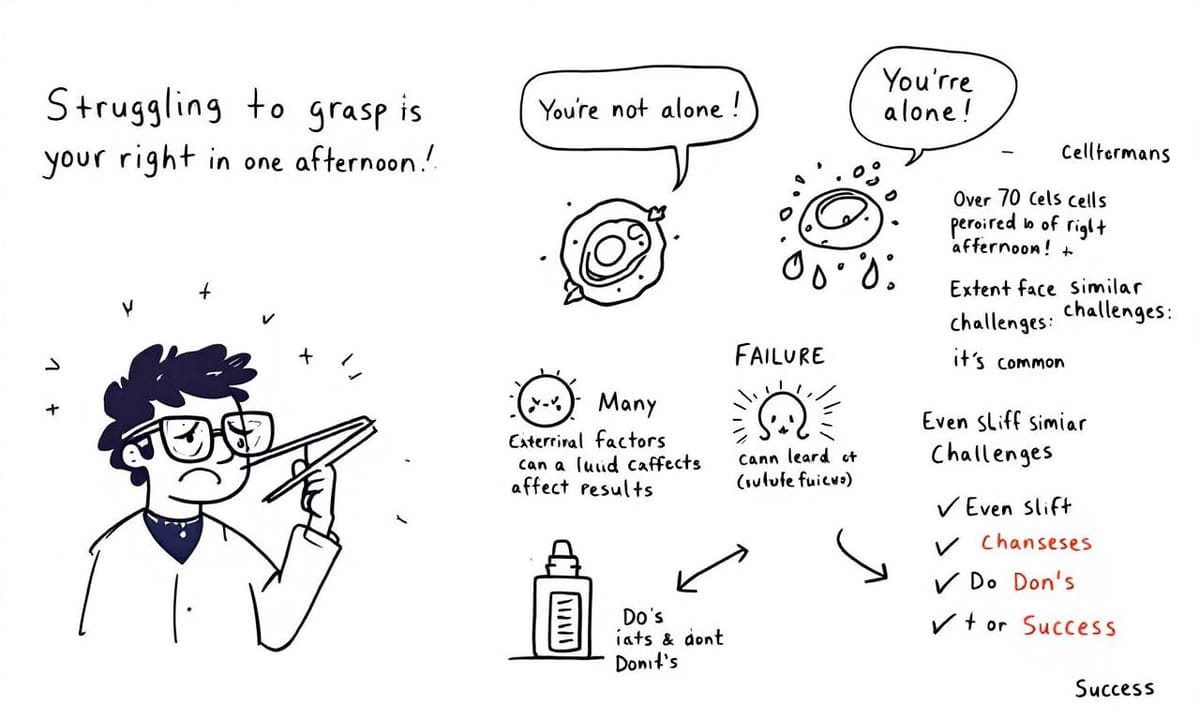 Struggling to grasp is
your right in one afternoon!
You're not alone!
You'rre
alone!
Cellformans
Over 70 Cels cells
peroired to of riglt
affernoon! +
Extent face similar
challenges: challenges:
it's common
Many
Exterriral factors
can a luuid caffects
affect results
FAILURE
cann leard ot
(sulufe fuicus)
Even sliff simiar
Challenges
✓ Even slift
✓ Chanseses
✓ Do Don's
✓ + or Success
Do's
iats & dont
Donit's
Success